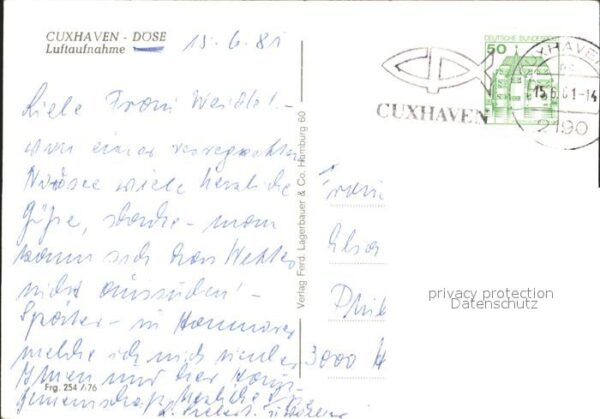 CUXHAVEN - DÖSE
Luftaufnahme
15.6.81
Liebe Frau Weidel! -
von einer verregneten
Nordsee viele herzliche
Grüße, schade - man
kann sich das Wetter
nicht aussuchen! -
Später - in Hannover
melde ich mich wieder
Ihnen und der
gemeinschaft herzliche
Frg. 254 / 76
Verlag Ferd. Lagerbauer & Co. Hamburg 60
DEUTSCHE BUNDESPOST
50
CUXHAVEN
CUXHAVEN
15.6.81-14
2190
Frau
Elsa
3000 H
privacy protection
Datenschutz